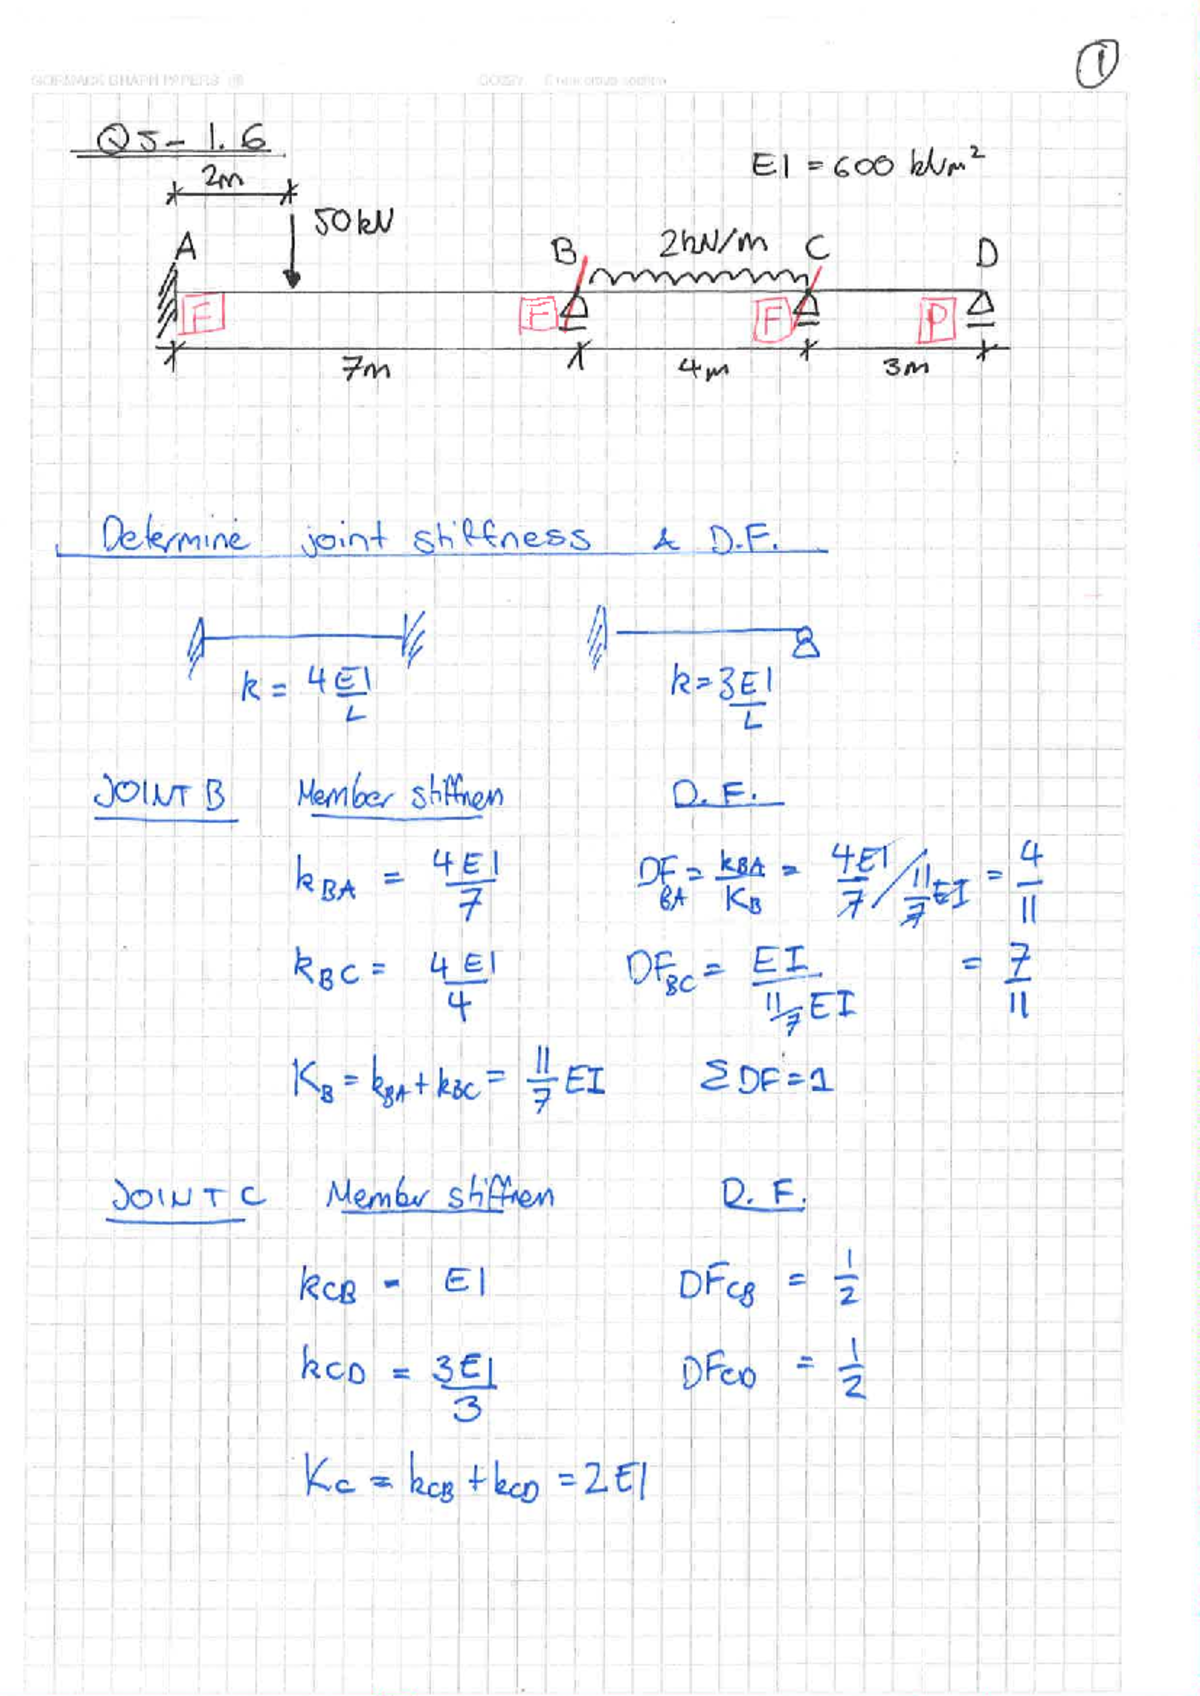 ①
GORMACK GRAPH PAPERS
Q5 - 1.6
2m
EI = 600 kNm²
50kN
A
B
2kN/m
C
D
F
F
F
P
7m
4m
3m
Determine joint stiffness & D.F.
k = 4EI/L
k = 3EI/L
JOINT B Member stiffnen D.F.
kBA = 4EI/7 DFBA = kBA/KB = 4EI/7 / 11/7 EI = 4/11
kBC = 4EI/4 DFBC = EI/(11/7 EI) = 7/11
KB = kBA + kBC = 11/7 EI ΣDF = 1
JOINT C Member stiffnen D.F.
kCB = EI DFCB = 1/2
kCD = 3EI/3 DFCD = 1/2
KC = kCB + kCD = 2EI